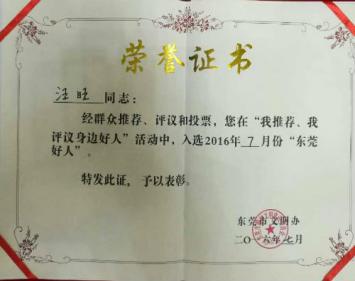 荣誉证书
汪旺 同志:
经群众推荐、评议和投票，您在“我推荐、我
评议身边好人”活动中，入选2016年 7 月份“东莞
好人”。
特发此证，予以表彰。
东莞市文明办
二〇一六年七月